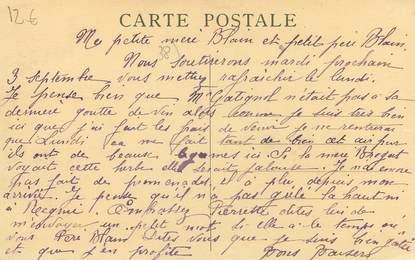 12 €
CARTE POSTALE
Ma petite mère Blain et petit père Blain,
Nous soutirerons mardi prochain
3 septembre vous mettrez rafraichir le lundi.
Je pense bien que Mr Gatignol n'était pas à sa
dernière goutte de vin alors comme je suis très bien
ici que j'ai fait les frais de venir je ne rentrerai
que Lundi. ça me fait tant de bien cet air pur
ils ont de beaux légumes ici. Si la mère
voyait cette herbe elle serait jalouse. Je n'ai encore
pas fait de promenades il a plu depuis mon
arrivée. Je pense qu'il n'a pas grêlé là haut ni
à Reignié. Embrassez Pierrette dites lui de
m'envoyer un petit mot si elle a le temps ou
vous Père Blain. Dites vous que je suis bien gâtée
et que j'en profite. Bons baisers